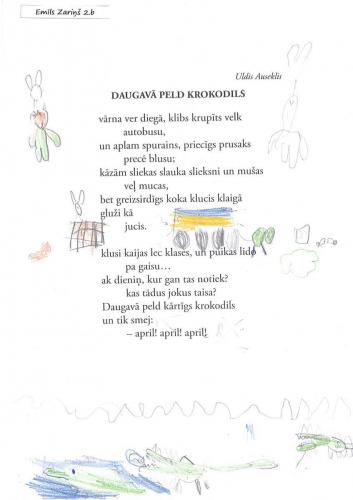 Emīls Zariņš 2.b
Uldis Auseklis
DAUGAVĀ PELD KROKODILS
vārna ver diegā, klibs krupītis velk
autobusu,
un aplam spurains, priecīgs prusaks
precē blusu;
kāzām sliekas slauka slieksni un mušas
veļ mucas,
bet greizsirdīgs koka klucis klaigā
gluži kā
jucis.
klusi kaijas lec klases, un puikas lido
pa gaisu…
ak dieniņ, kur gan tas notiek?
kas tādus jokus taisa?
Daugavā peld kārtīgs krokodils
un tik smej:
– april! april! april!